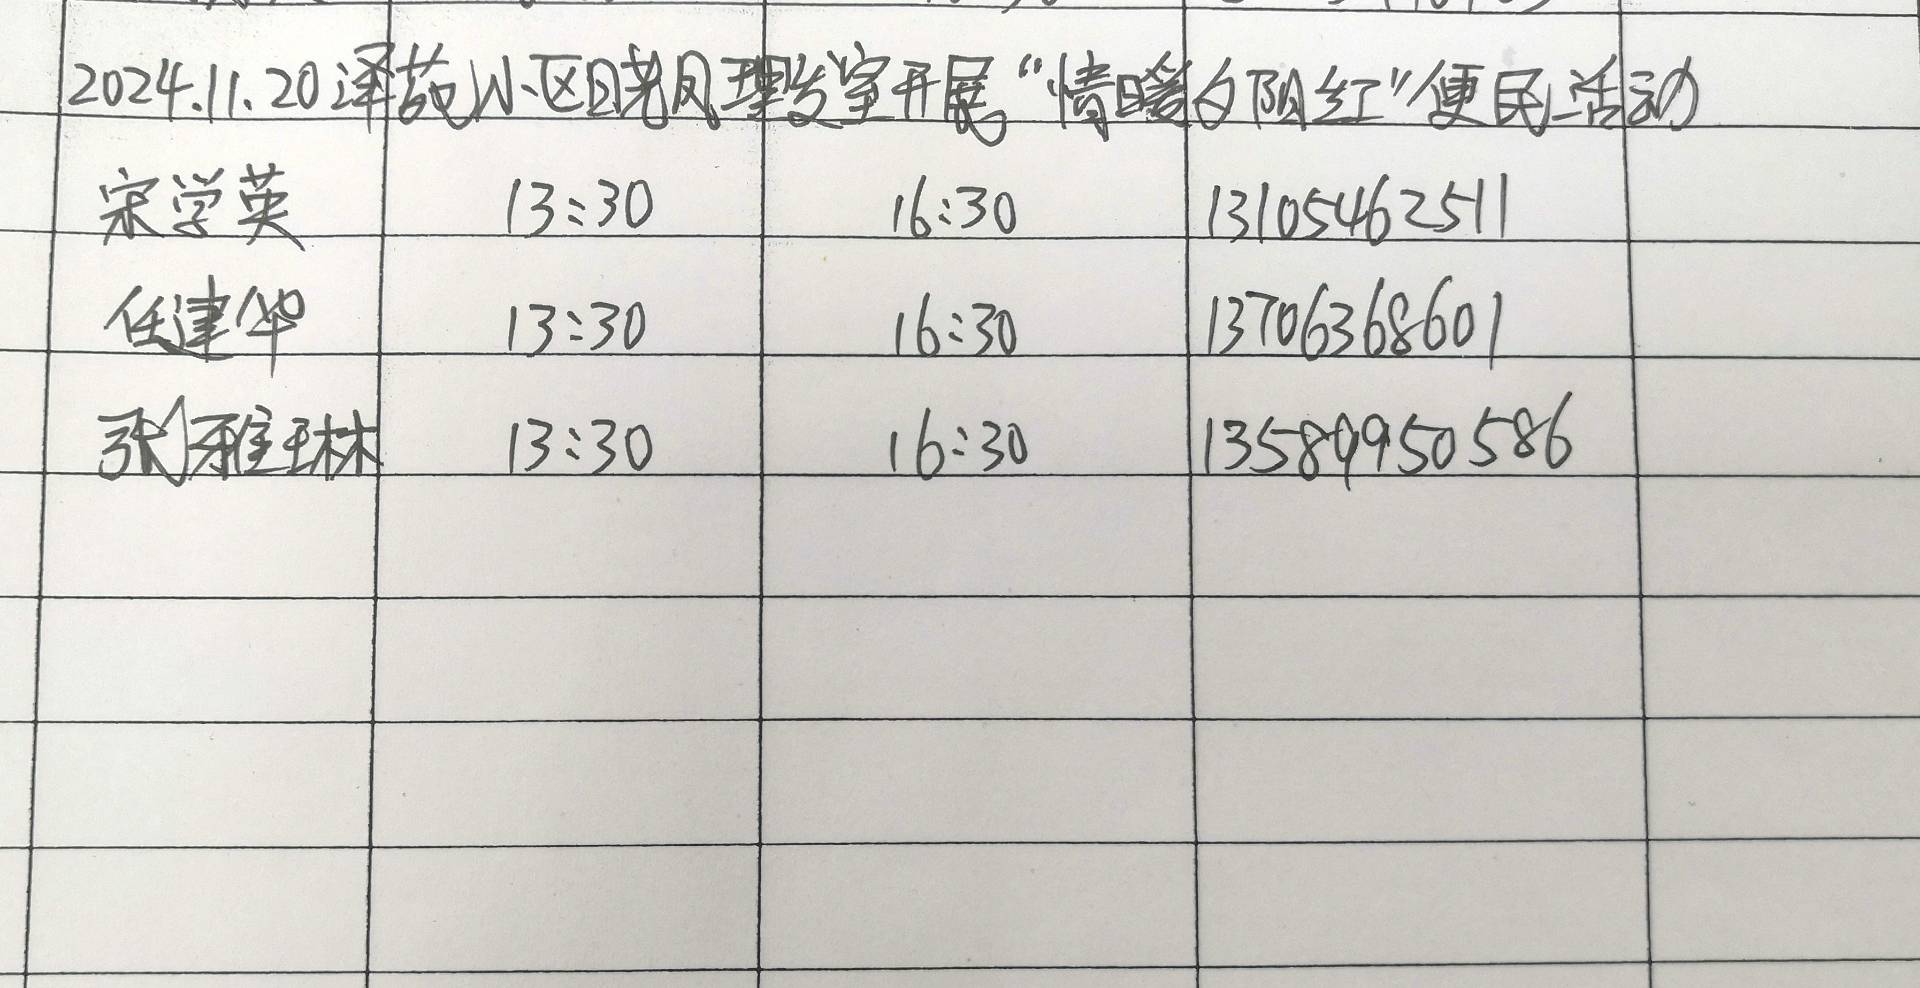 2024.11.20泽苑小区晓凤理发室开展“情暖夕阳红”便民活动
宋学英 13:30 16:30 13105462511
任建华 13:30 16:30 13706368601
张雅琳 13:30 16:30 13589950586